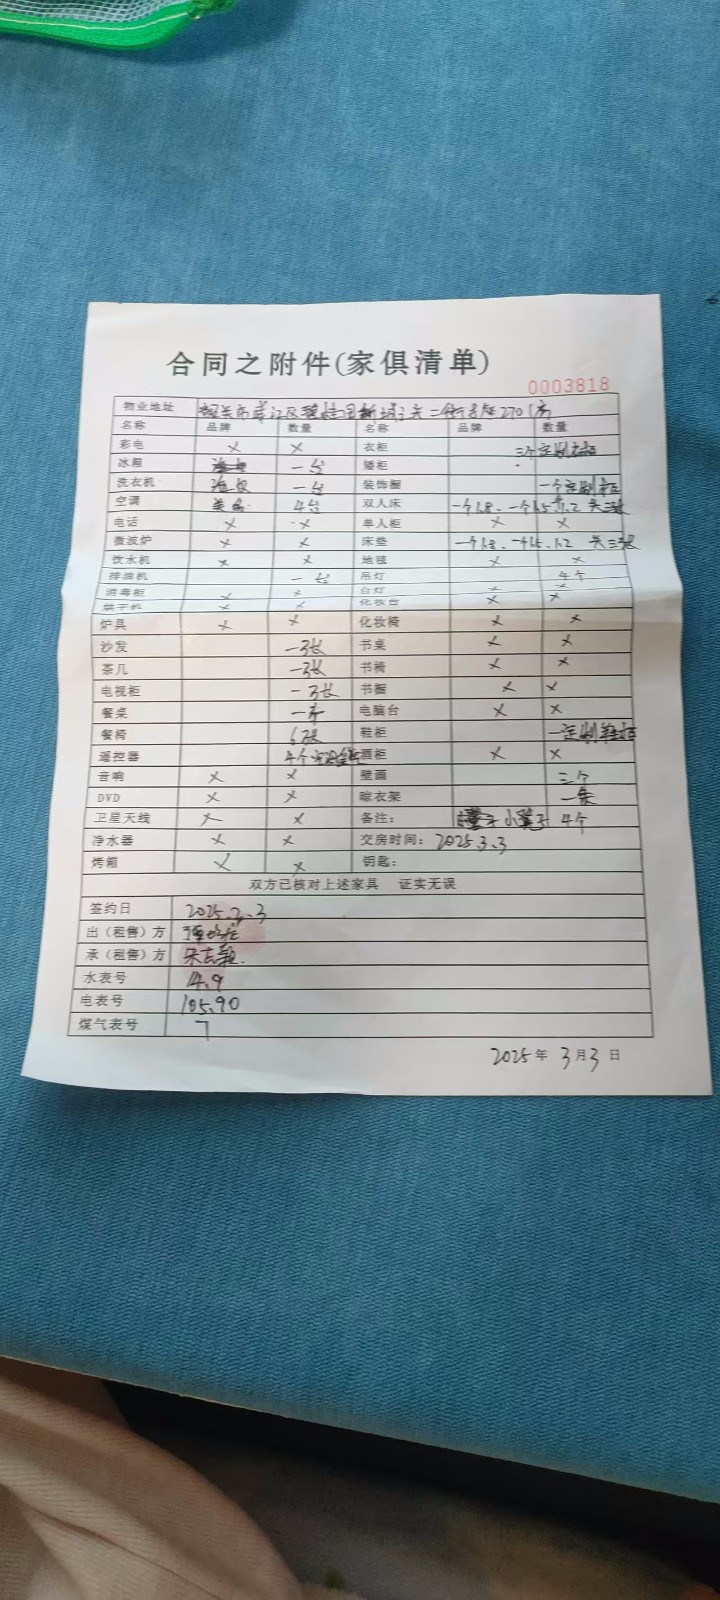 合同之附件(家俱清单)
0003818
物业地址 二街 2701房
名称 品牌 数量 名称 品牌 数量
彩电 × × 衣柜 三个定制衣柜
冰箱 一台 矮柜
洗衣机 一台 装饰橱 一个定制
空调 美的 4台 双人床 一个1.8、一个1.5、1.2 共三张
电话 × × 单人柜 × ×
微波炉 × × 床垫 一个1.8、一个1.5、1.2 共三张
饮水机 × × 地毯 × ×
排油机 一台 吊灯 4个
消毒柜 × × 台灯 × ×
烘干机 × × 化妆台 × ×
炉具 × × 化妆椅 × ×
沙发 一张 书桌 × ×
茶几 一张 书椅 × ×
电视柜 一张 书橱 × ×
餐桌 一 电脑台 × ×
餐椅 6张 鞋柜 一定制鞋柜
遥控器 4个空调 酒柜 × ×
音响 × × 壁画 三个
DVD × × 晾衣架 一条
卫星天线 × × 备注: 小凳子 4个
净水器 × × 交房时间: 2025.3.3
烤箱 × × 钥匙:
双方已核对上述家具 证实无误
签约日 2025.3.3
出（租售）方
承（租售）方 宋志颖.
水表号 14.9
电表号 105.90
煤气表号 7
2025年 3月3日